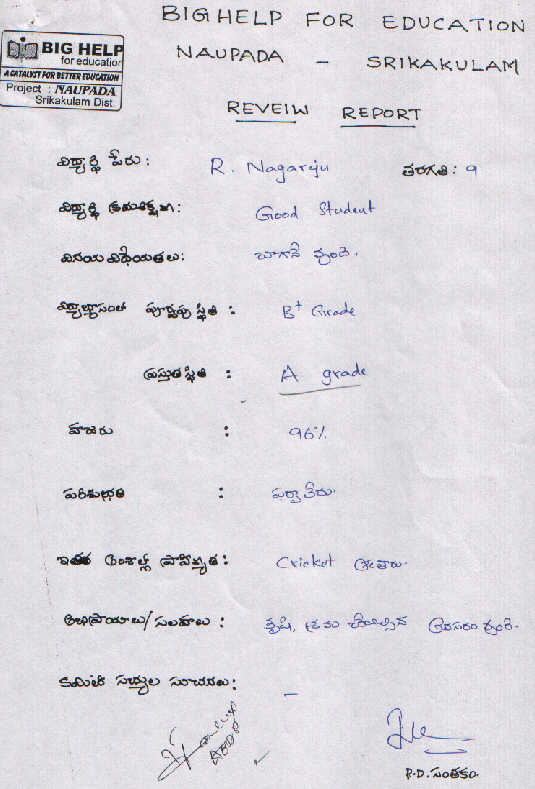 BIG HELP FOR EDUCATION
NAUPADA - SRIKAKULAM
BIG HELP
for education
A CATALYST FOR BETTER EDUCATION
Project : NAUPADA
Srikakulam Dist
REVEIW REPORT
విద్యార్థి పేరు: R. Nagaraju తరగతి: 9
విద్యార్థి క్రమశిక్షణ: Good Student
వినయ విధేయతలు: బాగానే వుంది.
పూర్వపు స్థితి: B+ Grade
ప్రస్తుత స్థితి : A grade
హాజరు : 96%
పరిశుభ్రత : ఫర్వాలేదు.
ఇతర అంశాల్లో ప్రావీణ్యత: Cricket ఆడతారు.
అభిప్రాయాలు/సలహాలు: కృషి, శ్రమ చేయాల్సిన అవసరం వుంది.
కమిటి సభ్యుల సూచనలు: -
P.D. సంతకం